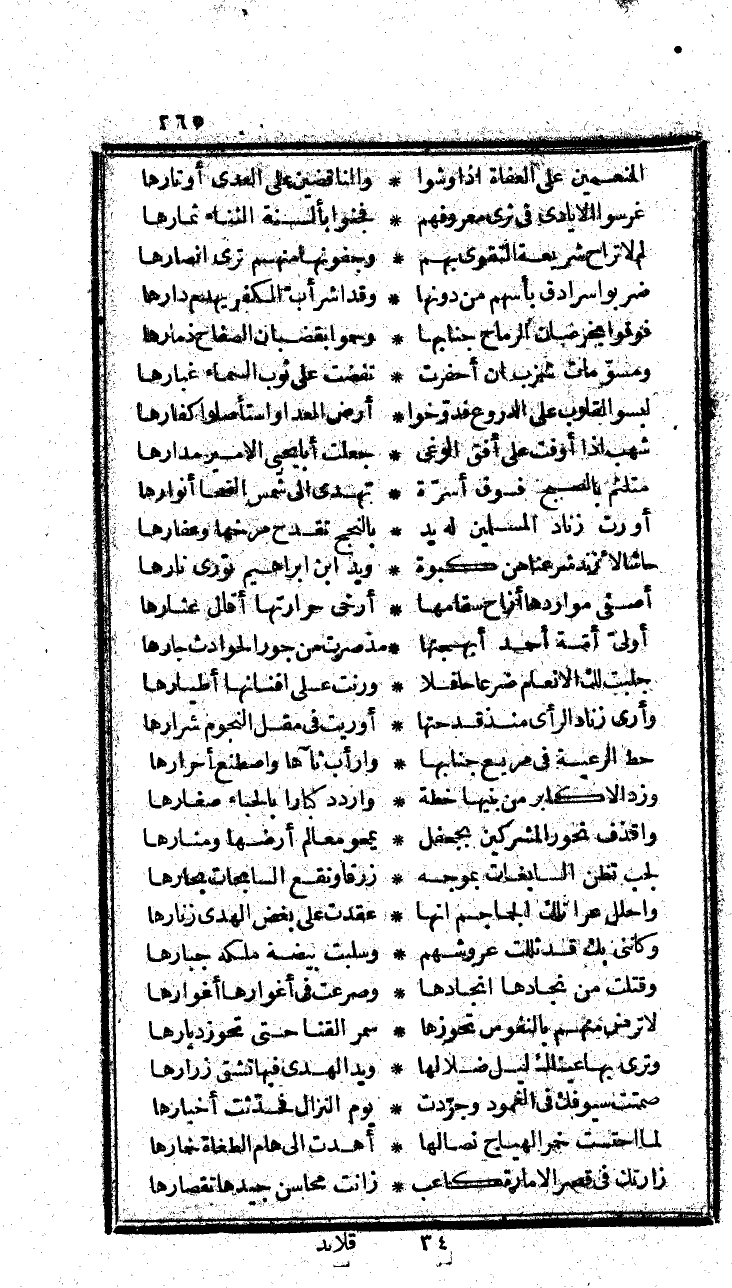 ٢٦٥
المنعمين على العفاة اذا وشوا * والناقضين على العدى أوتارها
غرسوا الايادى فى ثرى معروفهم * فجنوا بألسنة الثناء ثمارها
لم لا تراح شريعة التقوى بهم * وجفونها منهم ترى انصارها
ضربوا سرادق بأسهم من دونها * وقد اشرأب الكفر يهدم دارها
فوقوا بخرصان الرماح جنابها * وحموا بقضبان الصفاح ذمارها
ومسوّمات شزب ان أحفرت * نفضت على ثوب السماء غبارها
لبسوا القلوب على الدروع فدوّخوا * أرض العدا واستأصلوا كفارها
شهب اذا أوفت على أفق الوغى * جعلت أبا يحيى الامير مدارها
متلثم بالصبح فوق أسرّة * تهدى الى شمس الضحا أنوارها
أورت زناد المسلمين له يد * بالنجح تقدح مرخها وعفارها
حاشا لازند شرعنا من كبوة * ويد ابن ابراهيم تورى نارها
أصفى مواردها أزاح سقامها * أرخى حوارتها أقال عثارها
أولىّ أمّة أحمد أبهجتها * مذ صرت من جور الحوادث جارها
جلبت لك الانعام ضرعا حافلا * ورنت على افنانها أطيارها
وأرى زناد الرأى منذ قدحتها * أوريت فى مقل النجوم شرارها
حط الرعية فى مريع جنابها * وارأب ثآها واصطنع أحرارها
وزد الاكابر من بنيها خطة * واردد كبارا بالحباء صغارها
واقذف نحور المشركين بجحفل * يمحو معالم أرضها ومنارها
لجب تظن السابغات بموجه * زرقا ونقع السابحات بحارها
واحلل عرا تلك الجماجم انها * عقدت على بغض الهدى زنارها
وكأننى بك قد ثللت عروشهم * وسلبت بيضة ملكه جبارها
وقتلت من نجادها انجادها * وصرعت فى أغوارها أغوارها
لا ترض منهم بالنفوس تحوزها * سمر القنا حتى تحوز ديارها
وترى بها عيناك ليل ضلالها * ويد الهدى فيها تشق زرارها
صمتت سيوفك فى الغمود وجرّدت * يوم النزال فحدّثت أخبارها
لما احتست خمر الهياج نصالها * أهدت الى هام الطغاة خمارها
زارتك فى قصر الامارة كاعب * زانت محاسن جيدها بتقصارها
٣٤ قلايد